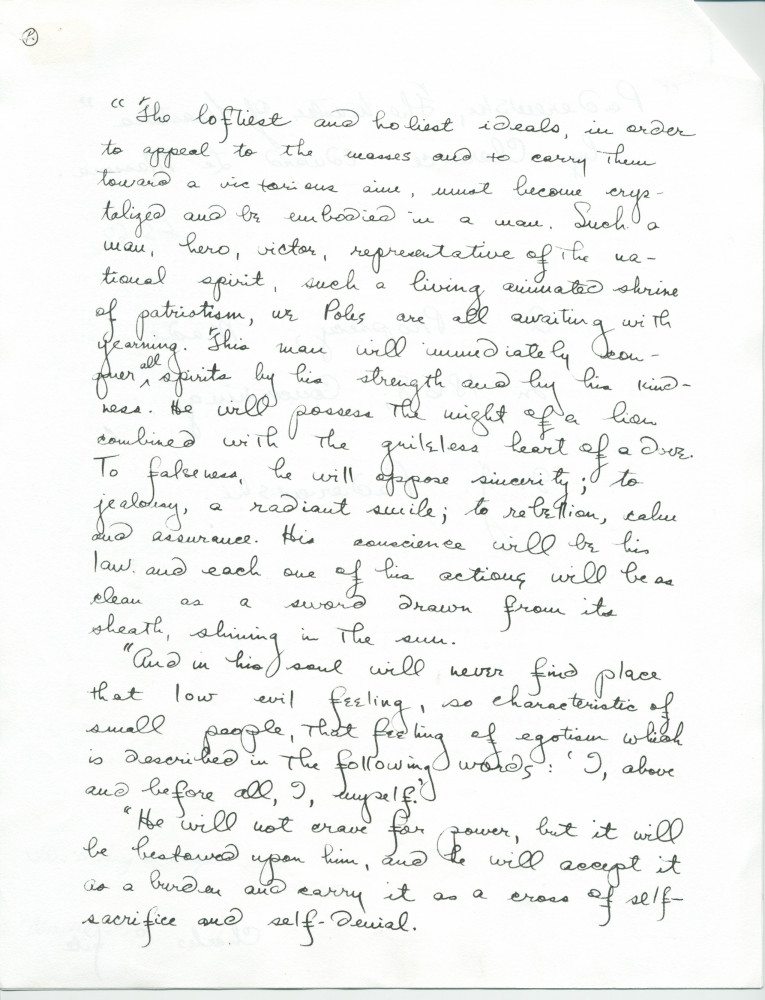 P.
"The loftiest and holiest ideals, in order
to appeal to the masses and to carry them
toward a victorious aim, must become crys-
talized and be embodied in a man. Such a
man, hero, victor, representative of the na-
tional spirit, such a living animated shrine
of patriotism, we Poles are all awaiting with
yearning. This man will immediately con-
quer all spirits by his strength and by his kind-
ness. He will possess the might of a lion
combined with the guileless heart of a dove.
To falseness, he will oppose sincerity; to
jealousy, a radiant smile; to rebellion, calm
and assurance. His conscience will be his
law. and each one of his actions will be as
clean as a sword drawn from its
sheath, shining in the sun.
"And in his soul will never find place
that low evil feeling, so characteristic of
small people, that feeling of egotism which
is described in the following words: 'I, above
and before all, I, myself.'
"He will not crave for power, but it will
be bestowed upon him, and he will accept it
as a burden and carry it as a cross of self-
sacrifice and self-denial.